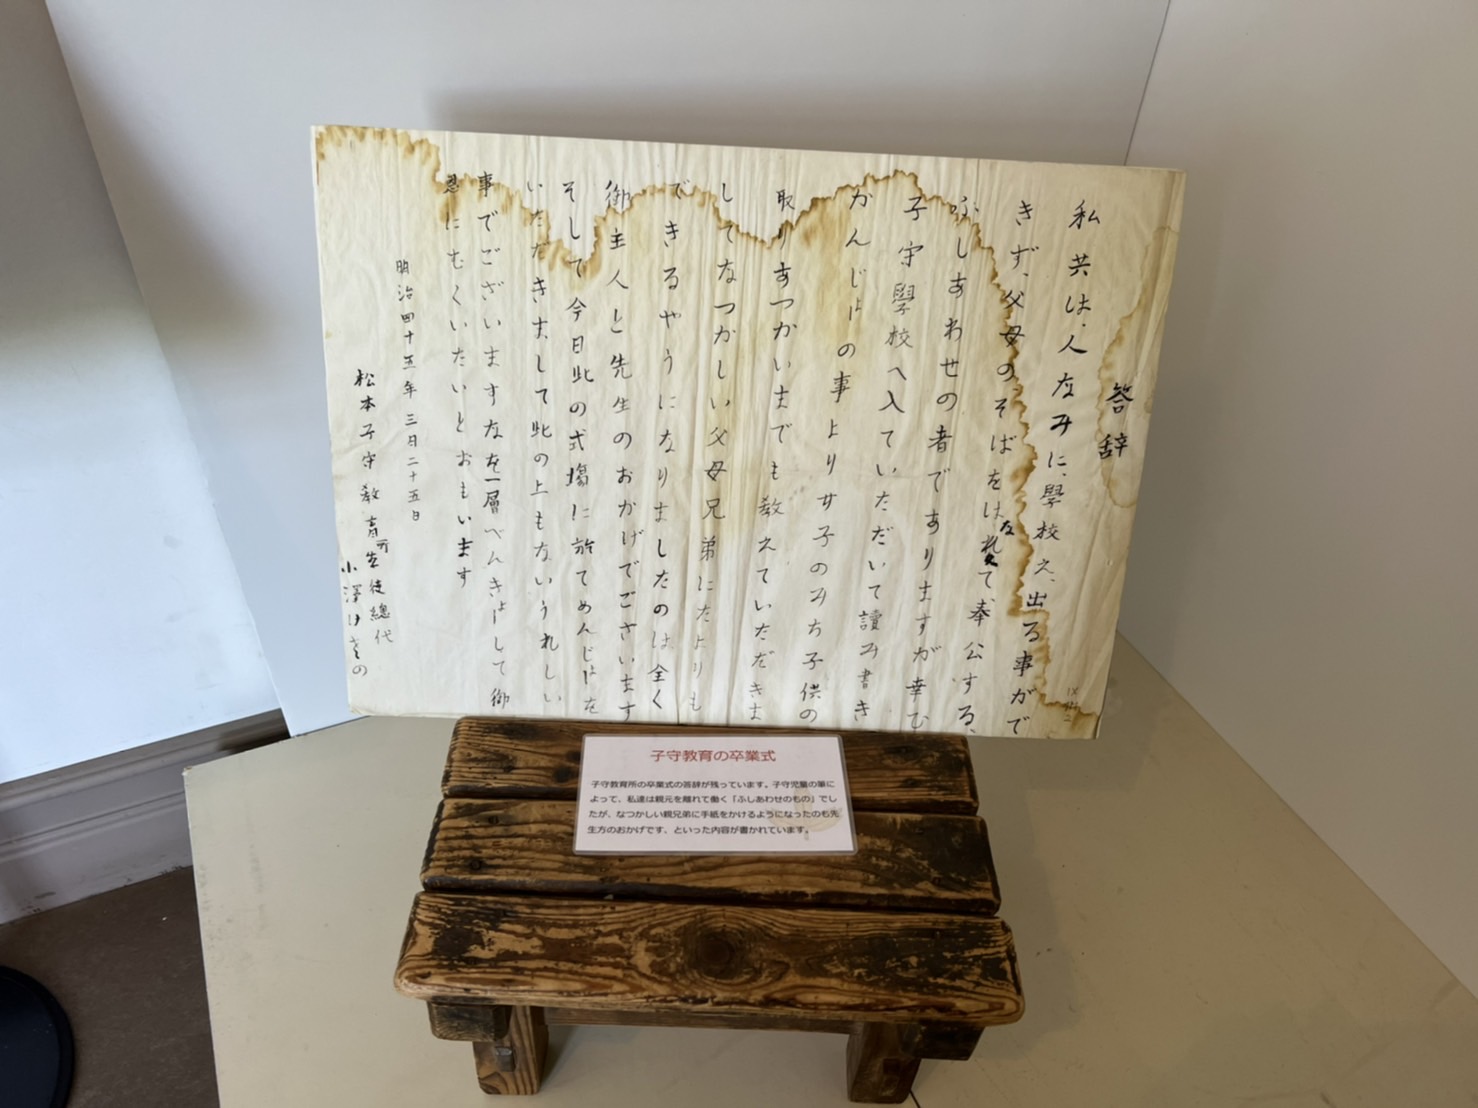 答辞
私共は、人なみに、學校え、出る事がで
きず、父母のそばをはなれて、奉公する、
ふしあわせの者でありますが幸む
子守學校へ入ていただいて讀み書き
かんじょの事より女子のみち子供の
取りあつかいまでも教えていただきま
してなつかしい父母兄弟にたよりも
できるやうになりましたのは全く
御主人と先生のおかげでございます
そして今日此の式場に於てめんじょを
いただきまして此の上もないうれしい
事でございますなを一層べんきょして御
恩にむくいたいとおもいます
明治四十五年三月二十五日
松本子守教育所生徒總代
小澤けさの
子守教育の卒業式
子守教育所の卒業式の答辞が残っています。子守児童の筆に
よって、私達は親元を離れて働く「ふしあわせのもの」でし
たが、なつかしい親兄弟に手紙をかけるようになったのも先
生方のおかげです、といった内容が書かれています。